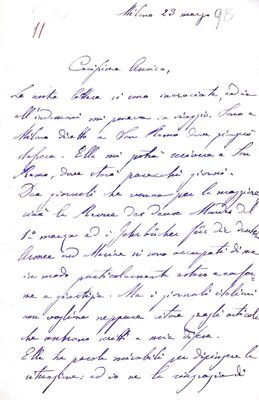 Milano 23 marzo 98
11
Carissima Amica,
Le nostre lettere si sono incrociate, ed io
all'indomani mi poneva in viaggio. Sono a
Milano diretto a San Remo dove giungerò
stasera. Ella mi potrà scrivere a San
Remo, dove starò parecchi giorni.
Due giornali che vanno per la maggiore
cioè la Revue des deux Mondes del
1º marzo ed i Jahrbücher für die deutsche
Armee und Marine si sono occupati di me
in modo particolarmente esteso e confor-
me a giustizia. Ma i giornali italiani
non vogliono neppure citare quegli articoli
che sembrano scritti a mia difesa.
Ella ha parole mirabili per dipingere la
situazione: ed io ne la ringrazio di